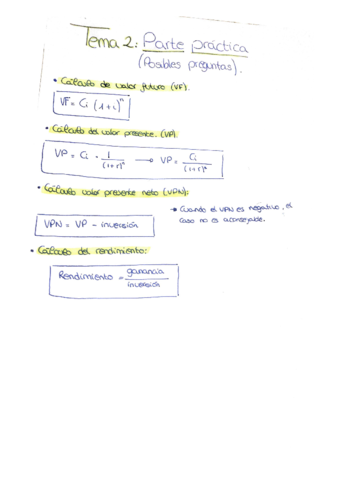 Tema 2: Parte práctica
(Posibles preguntas).
• Cálculo de valor futuro (VF).
VF = Ci (1+i)^n
• Cálculo del valor presente. (VP).
VP = Ci · 1/(1+r)^n → VP = Ci/(1+r)^n
• Cálculo valor presente neto (VPN):
→ Cuando el VPN es negativo, el
caso no es aconsejable.
VPN = VP - inversión
• Cálculo del rendimiento:
Rendimiento = ganancia/inversión